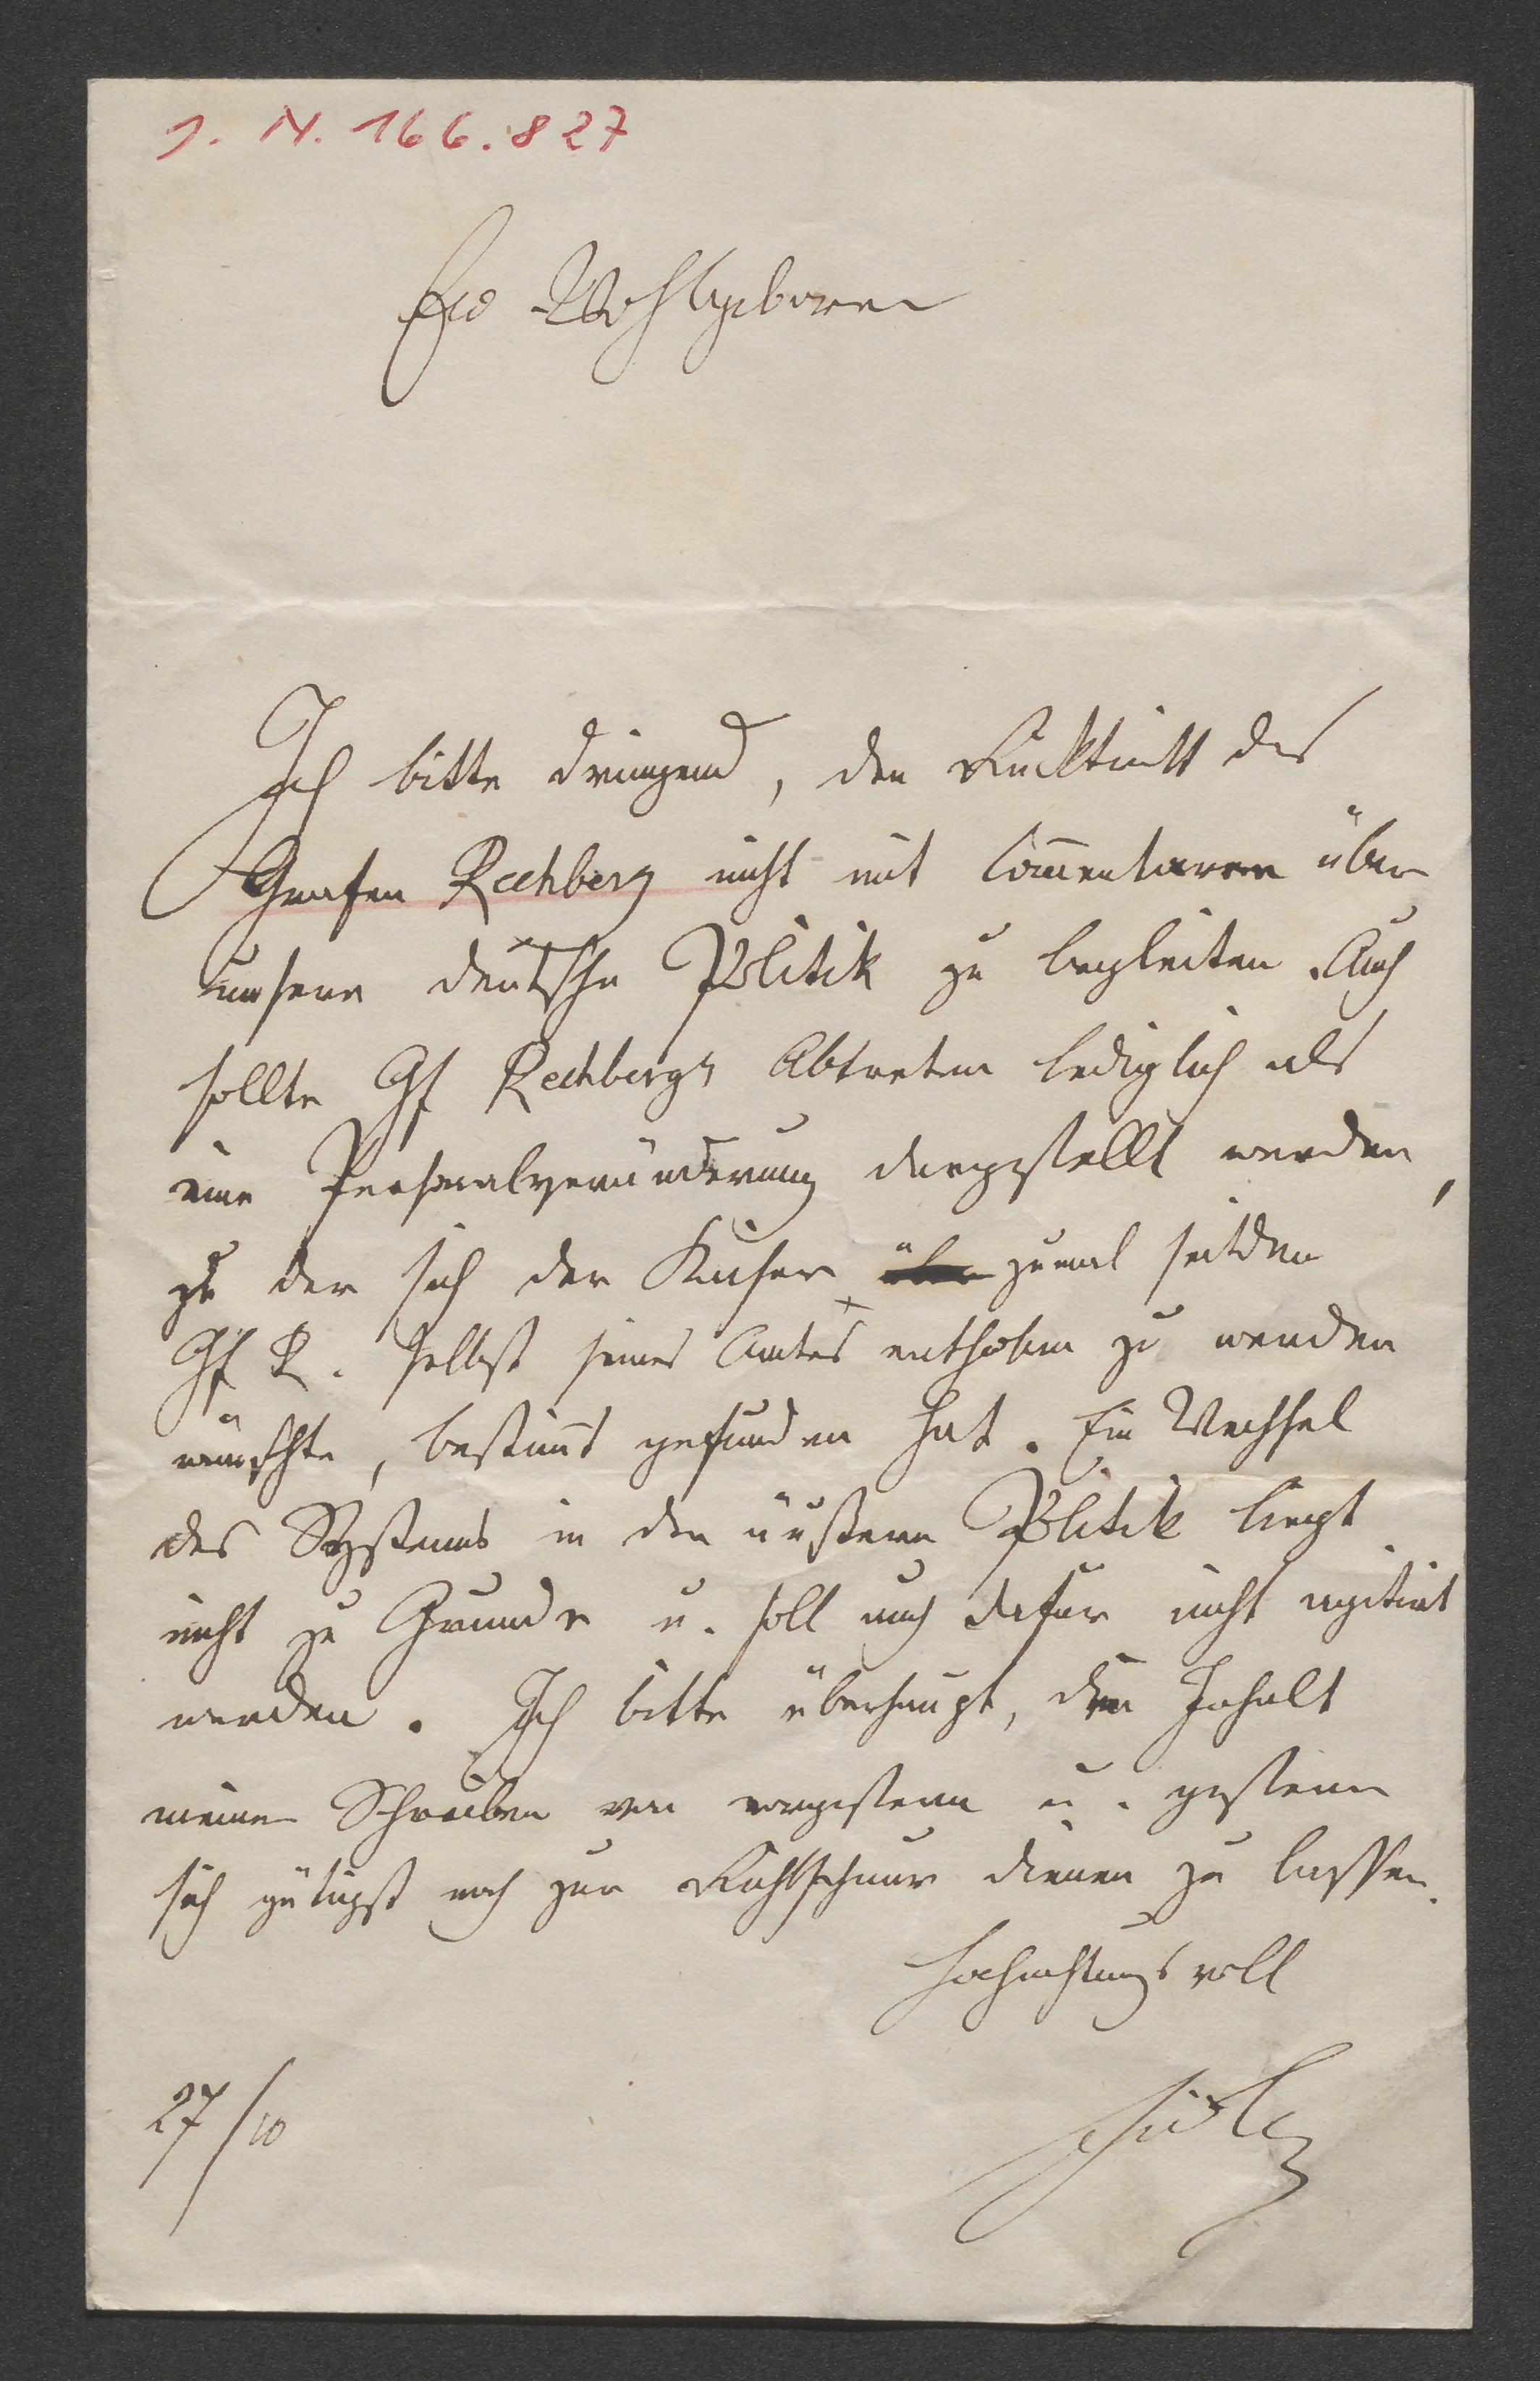 J. N. 166.827
Ew Wohlgeboren
Ich bitte dringend, den Rücktritt des
Grafen Rechberg nicht mit Com̄entaren über
unsere deutsche Politik zu begleiten. Auch
sollte Gf Rechbergs Abtreten lediglich als
eine Personalveränderung dargestellt werden,
zu der sich der Kaiser, über zumal seitdem
Gf R. selbst seines Amtes enthoben zu werden
wünschte, bestim̄t gefunden hat. Ein Wechsel
des Systems in der äußeren Politik liegt
nicht zu Grunde u. soll auch dafür nicht agitirt
werden. Ich bitte überhaupt, den Inhalt
meiner Schreiben von vorgestern u. gestern
sich gütigst noch zur Richtschnur dienen zu lassen.
Hochachtungsvoll
27/10